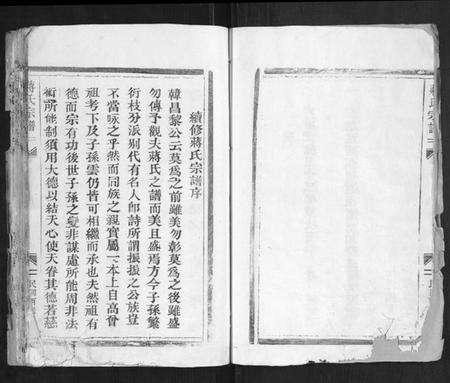 續修蔣氏宗譜序
韓昌黎公云莫為之前雖美勿彰莫為之後雖盛
勿傳予觀夫蔣氏之譜而美且盛焉方今子孫繁
衍枝分派別代有名人郎詩所謂振振之公族豈
不當咏之乎然而同族之親實屬一本上自高曾
祖考下及子孫雲仍皆可相繼而承也夫然祖有
德而宗有功後世子孫之變非謀處所能周非法
術所能制須用大德以結天心使天眷其德若慈
蔣氏宗譜
蔣氏宗譜